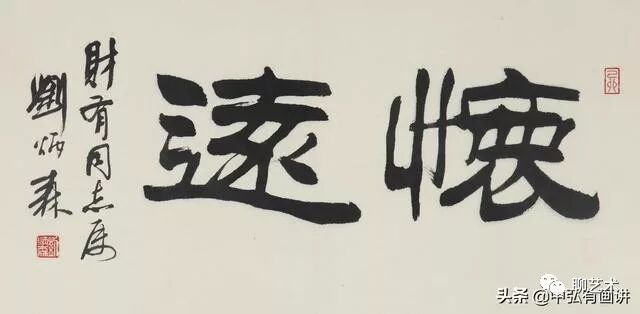 懷遠
財有同志属
劉炳森
聊艺术
头条 @弘有画讲